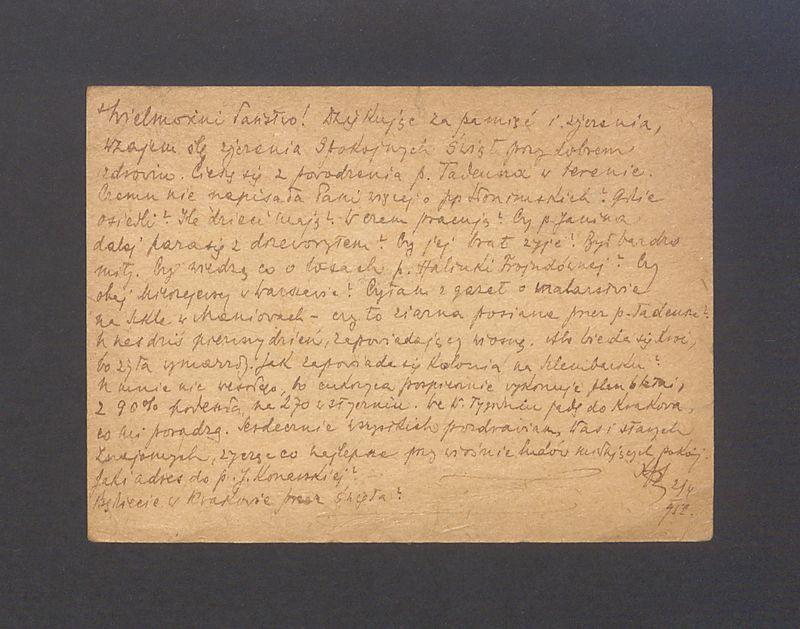 Wielmożni Państwo! Dziękując za pamięć i życzenia,
wzajem ślę życzenia Spokojnych Świąt przy dobrem
zdrowiu. Cieszę się z powodzenia p. Tadeusza w terenie.
Czemu nie napisała Pani więcej o pp Słonimskich? Gdzie
osiedli? Ile dzieci mają? W czem pracują? Czy p. Janina
dalej para się z drzeworytem? Czy jej brat żyje? Był bardzo
miły. Czy wiedzą co o losach p. Halinki Frojndównej? Czy
obaj w Warszawie? Czytam z gazet o malarstwie
na szkle w Maniowach – czy to ziarna posiane przez p. Tadeusza?
U nas dziś pierwszy dzień, zapowiadający wiosnę. Ale bieda się
bo żyta wymarzły. Jak zapowiada się Kolonia na Klembarku?
U mnie nie wesoło, bo cukrzyca pospiesznie wykonuje plan
z 90% na 270 w styczniu. We w. tygodniu jadę do Krakowa,
co mi poradzą. Serdecznie wszystkich pozdrawiam, Was i starych
Znajomych, życząc co najlepsze przy wiośnie ludów miłujących pokój.
Jaki adres do p. J. Konarskiej?
Będziecie w Krakowie przez Święta?
2/4
952.